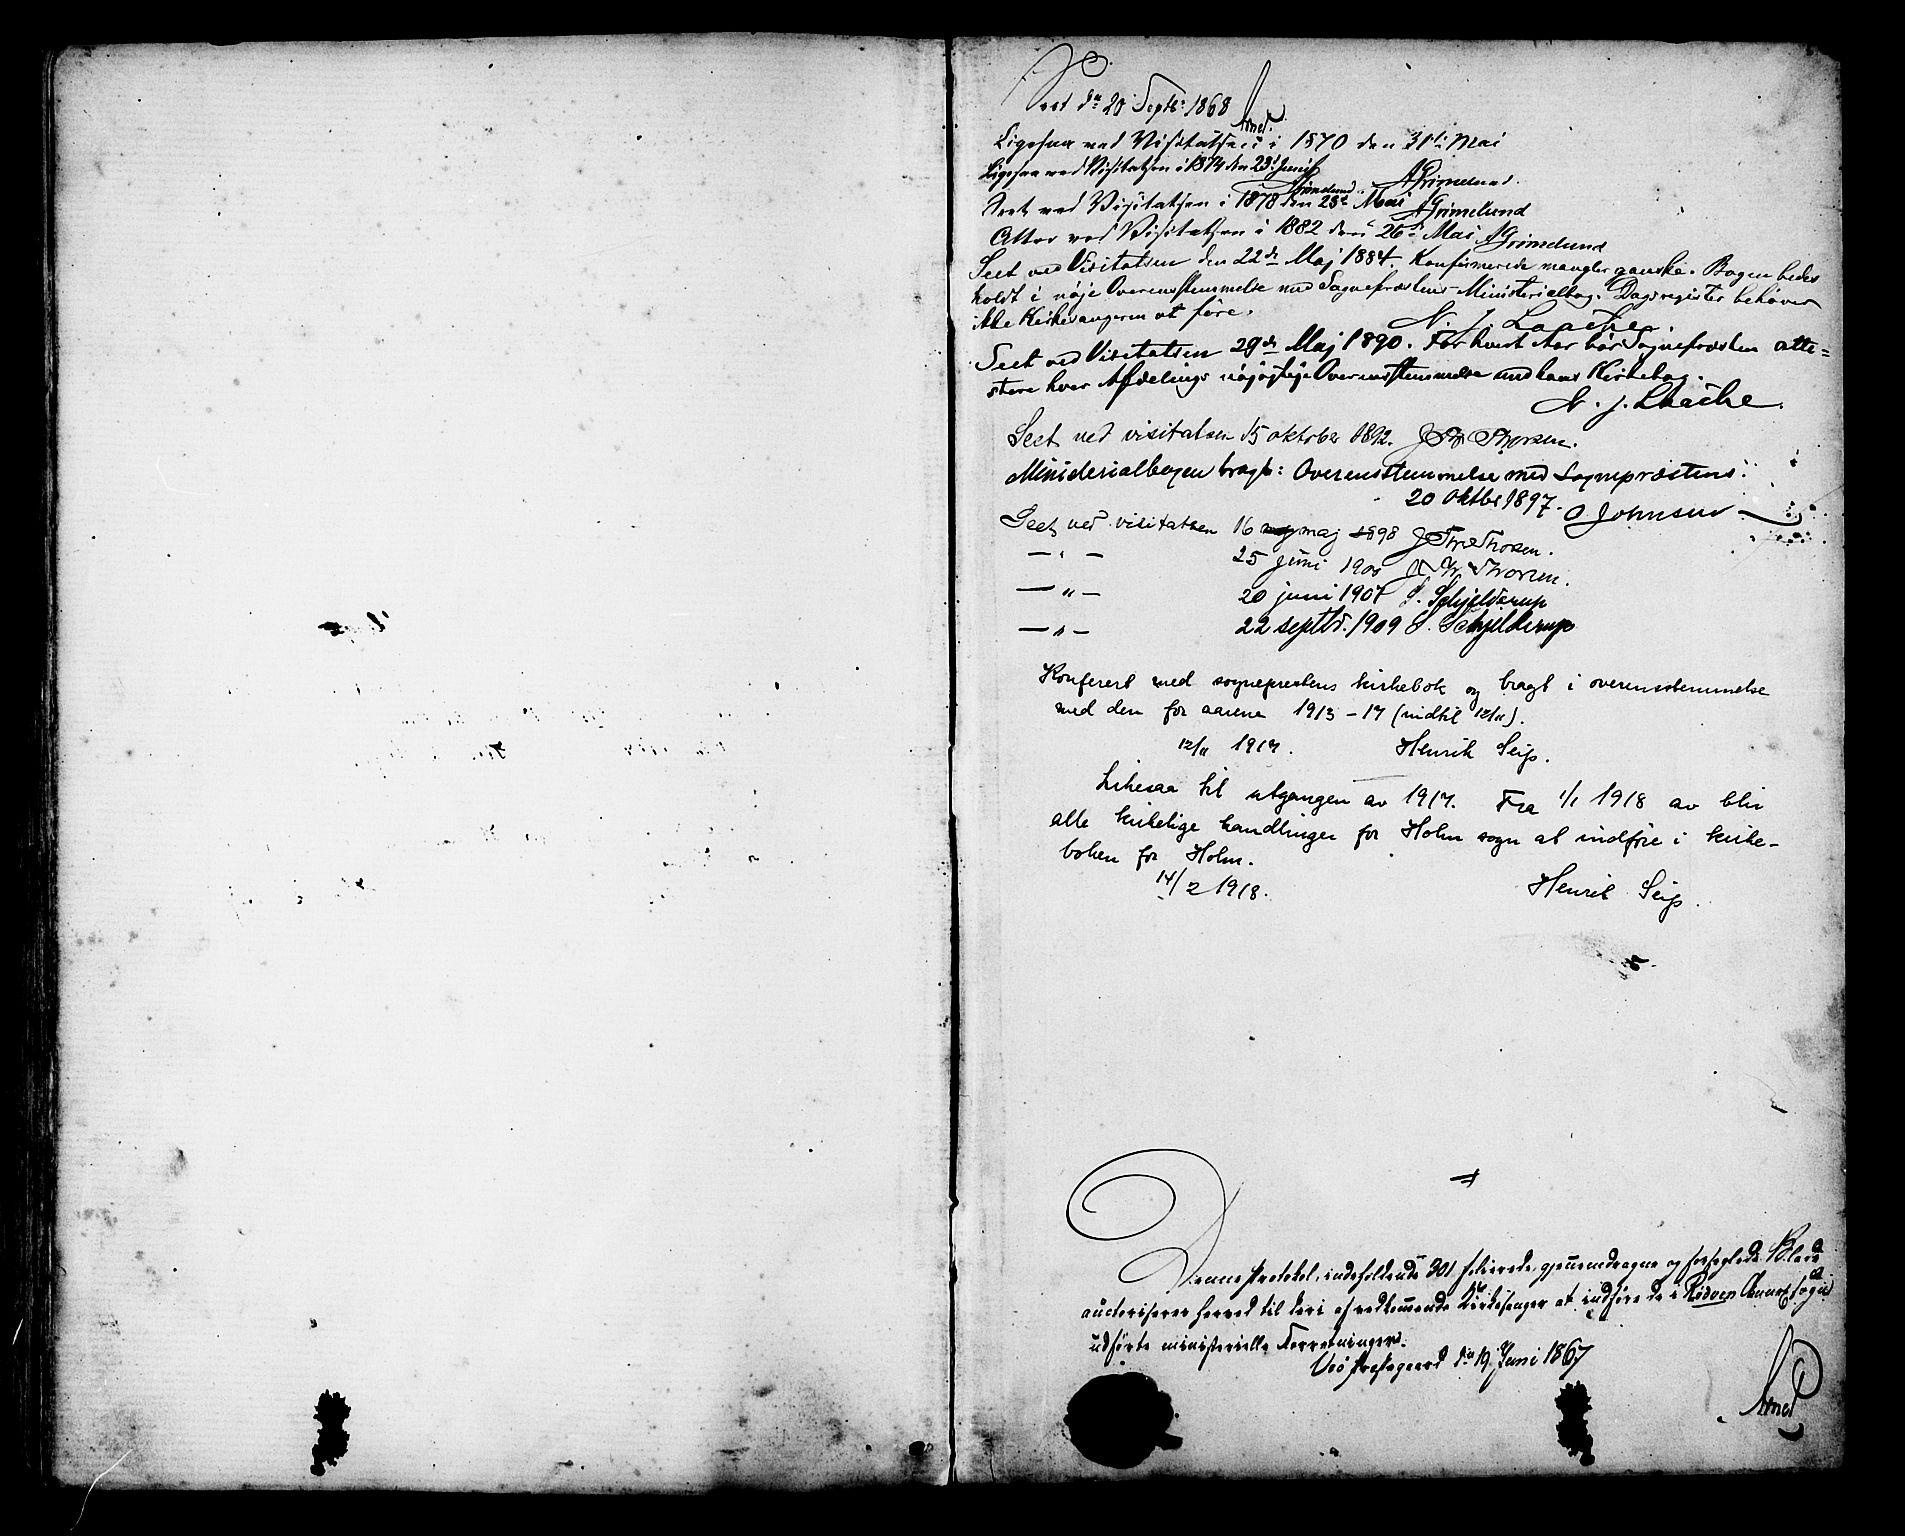 Seet dn 20 Septbr 1868
Arnet.
Ligesaa ved Visitatsen i 1870 den 31te Mai
AGrimelund.
Ligesaa ved Visitatsen i 1874 den 23d Juni
Grimelund.
Seet ved Visitatsen i 1878 den 28de Mai AGrimelund
Atter ved Visitatsen i 1882 den 26de Mai AGrimelund
Seet ved Visitatsen den 22de Maj 1884. Konfirmerede mangler ganske. Bogen bedes
holdt i nøje Overensstemmelse med Sognepræstens Ministerialbog. Dagsregister behøver
ikke Kirkesangeren at føre.
N. J. Laache.
Seet ved Visitatsen 29de Maj 1890. For hvert Aar bør Sognepræsten atte=
stere hver Afdelings nøjagtige Overensstemmelse med hans Kirkebog.
N. J. Laache.
Seet ved visitatsen 15 oktober 1892. Thorsen.
Ministerialbogen bragt i Overensstemmelse med Sognepræstens.
20 Oktbr 1897. O Johnsen
Seet ved visitatsen 16 maj 1898 Thorsen.
— " — 25 juni 1900 Thorsen.
— " — 20 juni 1907 Schjelderup
— " — 22 septbr. 1909 Schjelderup
Konferert med sogneprestens kirkebok og bragt i overensstemmelse
med den for aarene 1913-17 (indtil 12/11).
12/11 1917. Henrik Seip.
Likesaa til utgangen av 1917. Fra 1/1 1918 av blir
alle kirkelige handlinger for Holm sogn at indføre i kirke-
boken for Holm.
14/2 1918. Henrik Seip.
Denne Protokol, indeholdende 301 folierede, gjennemdragne og forseglede Blade
auctoriseres herved til deri af vedkommende Kirkesanger at indføre de i Rødven Annexsogn
udførte ministerielle Forretninger.
Veø Præstegaard dn 19 Juni 1867
Arnet